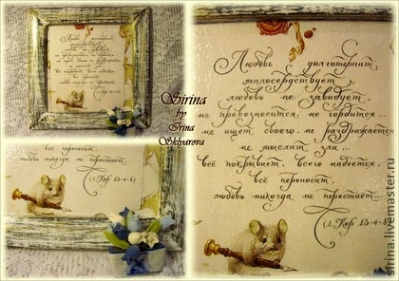 Любовь долготерпит,
милосердствует,
любовь не завидует,
не превозносится, не гордится...
не ищет своего, не раздражается
не мыслит зла...
всё покрывает, всего надеется,
всё переносит.
любовь никогда не перестаёт.
(1 Кор 13-4-8)
Sirina
by
Irina
Shlyarova
любовь никогда не перестаёт.
(1 Кор 13-4-8)
sirina.livemaster.ru